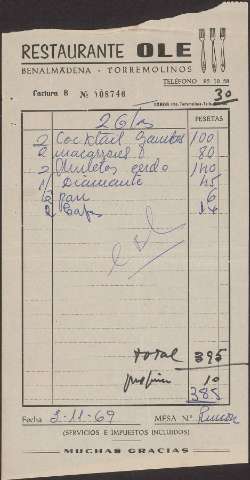 RESTAURANTE OLE
BENALMADENA - TORREMOLINOS
TELÉFONO 85 10 58
Factura B Nº 108746
30
PESETAS
2 Cocktail Gambas 100
2 macarrones 80
2 Chuletas cerdo 140
1/ Diamante 45
pan 6
2 Cafes
total 395
propina 10
385
Fecha 3-11-69 MESA N.º Rincon
(SERVICIOS E IMPUESTOS INCLUIDOS)
MUCHAS GRACIAS